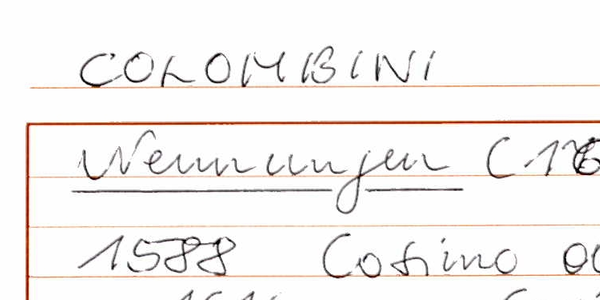 COLOMBINI
Nennungen (176
1588 Cosimo